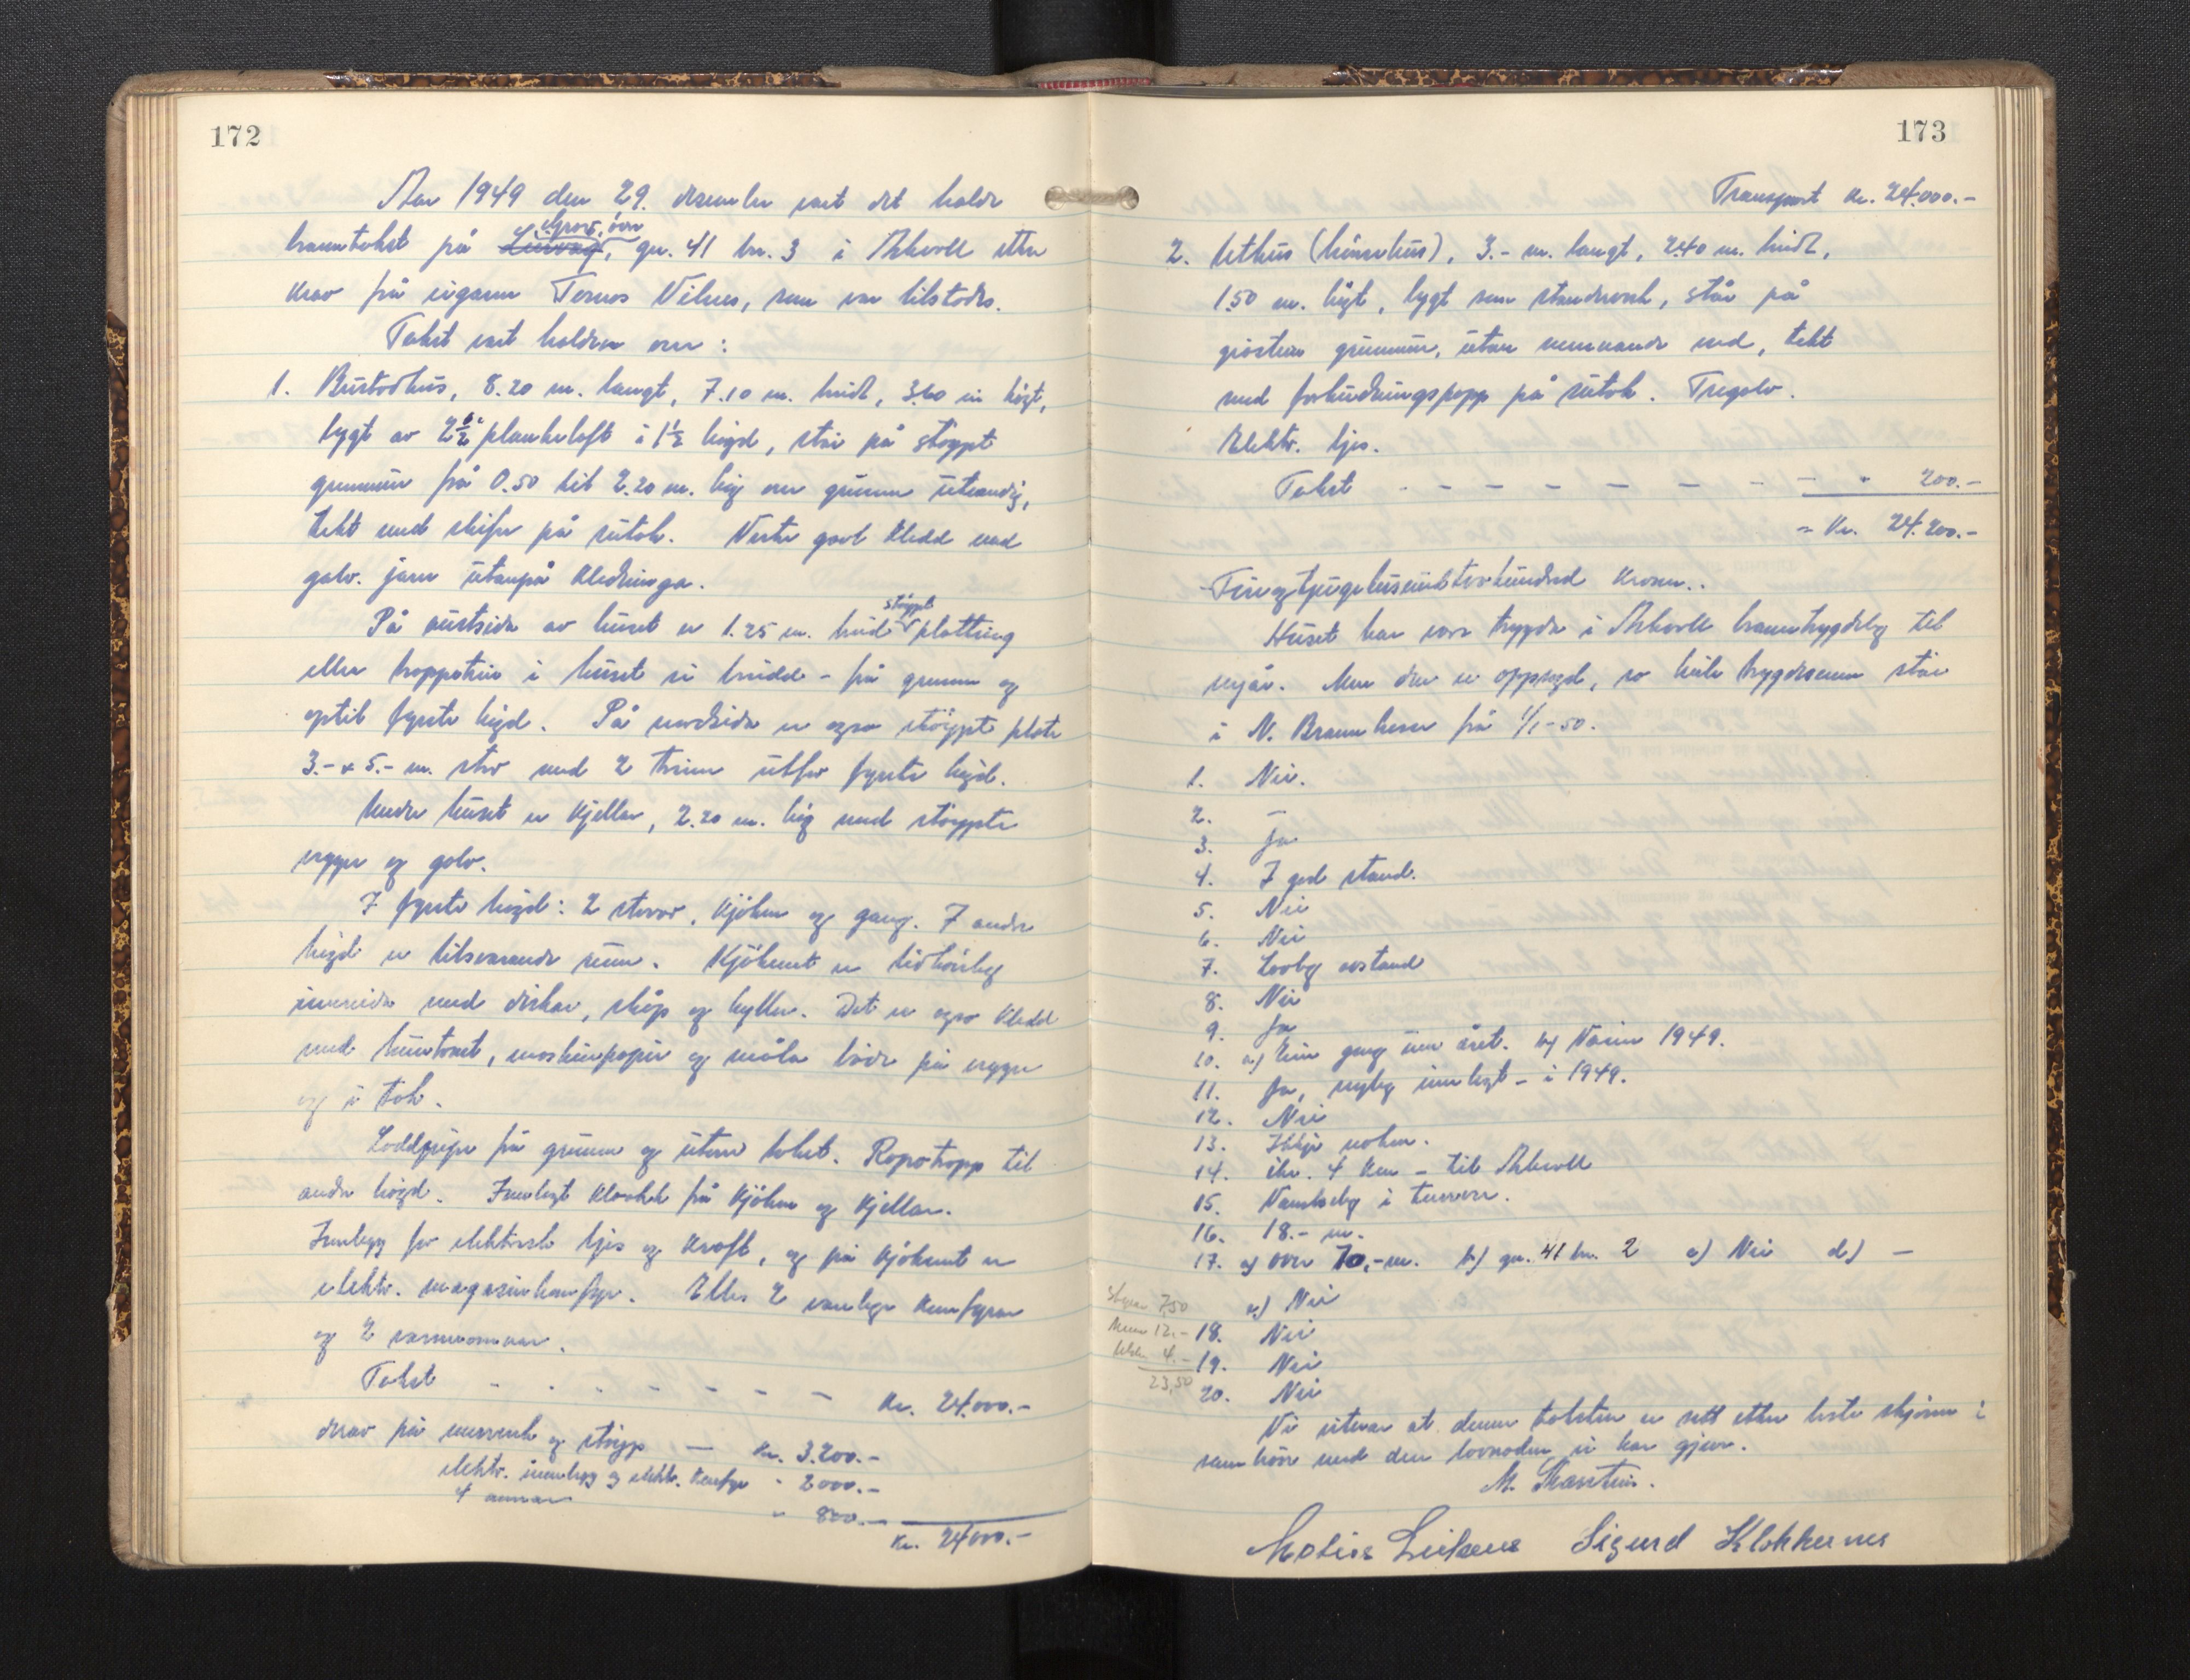 172
Aar 1949 den 29. desember vart det halde
Grov, øvre
branntakst på Leirvåg, gn. 41 br. 3 i Askvoll etter
krav frå eigaren Tomas Vilnes, som var tilstades.
Takst vart halden over:
1. Bustadhus, 8.20 m. langt, 7.10 m. breidt, 3.60 m høgt,
bygt av 2½" plankeloft i 1½ høgd, står på støypt
grunnmur frå 0.50 til 2.20 m. høg over grunnen utvendig,
tekt med skifer på sutak. Vestre gavl kledd med
galv. jarn utanpå kledninga.
støypt
På austsida av huset er 1.25 m. breid platting
eller troppetrin i huset si breidde - frå grunnen og
optil fyrste høgd. På nordsida er ogso støypt plate
3.- x 5.- m. stor med 2 trinn utfor fyrste høgd.
Under huset er kjellar, 2.20 m. høg med støypte
vegger og golv.
I fyrste høgd: 2 stover, kjøken og gang. I andre
høgd er tilsvarande rom. Kjøkenet er tidhøveleg
innreidd med diskar, skåp og hyller. Det er ogso kledd
med huntonit, maskinpapir og måla både på vegger
og i tak.
Loddpipe frå grunnen og utover taket. Rapatropp til
andre høgd. Innlagt kloakk frå kjøken og kjellar.
Innlegg for elektrisk ljos og kraft, og på kjøkenet er
elektr. magasinkomfyr. Elles 2 vanlege komfyrar
og 2 varmeomnar.
Takst - - - - - - - Kr. 24.000.-
derav på murverk og støyp — Kr. 3.200.-
elektr. innlegg og elektr. komfyr " 2000.-
4 omnar " 800.-
Kr. 24000.-
173
Transport Kr. 24.000.-
2. Uthus (hønsehus), 3.- m. langt, 2.40 m. breidt,
1.50 m. høgt, bygt som standarverk, står på
gråstein grunnmur, utan nemnande verd, tekt
med forhudningspapp på sutak. Tregolv.
Elektr. ljos.
Takst - - - - - - - - " 200.-
= Kr. 24.200.-
Tjueogfiretusenogtohundrad kroner.
Huset har vore trygda i Askvoll branntrygdelag til
nyår. Men den er oppsagd, so heile trygdesummen står
i N. Brannkasse frå 1/1-50.
1. Nei.
2. —
3. Ja
4. I god stand.
5. Nei
6. Nei
7. Lovleg avstand
8. Nei
9. Ja
10. a) Ein gong um året. b) Våren 1949.
11. Ja, nyleg innlagt - i 1949.
12. Nei
13. Ikkje noken.
14. ikr. 4 km - til Askvoll
15. Vanskeleg i turrver.
16. 18.- m.
17. a) over 70,-m. b) gn. 41 br. 2 c) Nei d) —
e) Nei
18. Nei
19. Nei
20. Nei
7,50
12.-
4.-
23,50
Vi vitnar at denne taksten er sett etter beste skjønn i
samhøve med den lovnaden vi har gjeve.
Sigurd Klokkernes